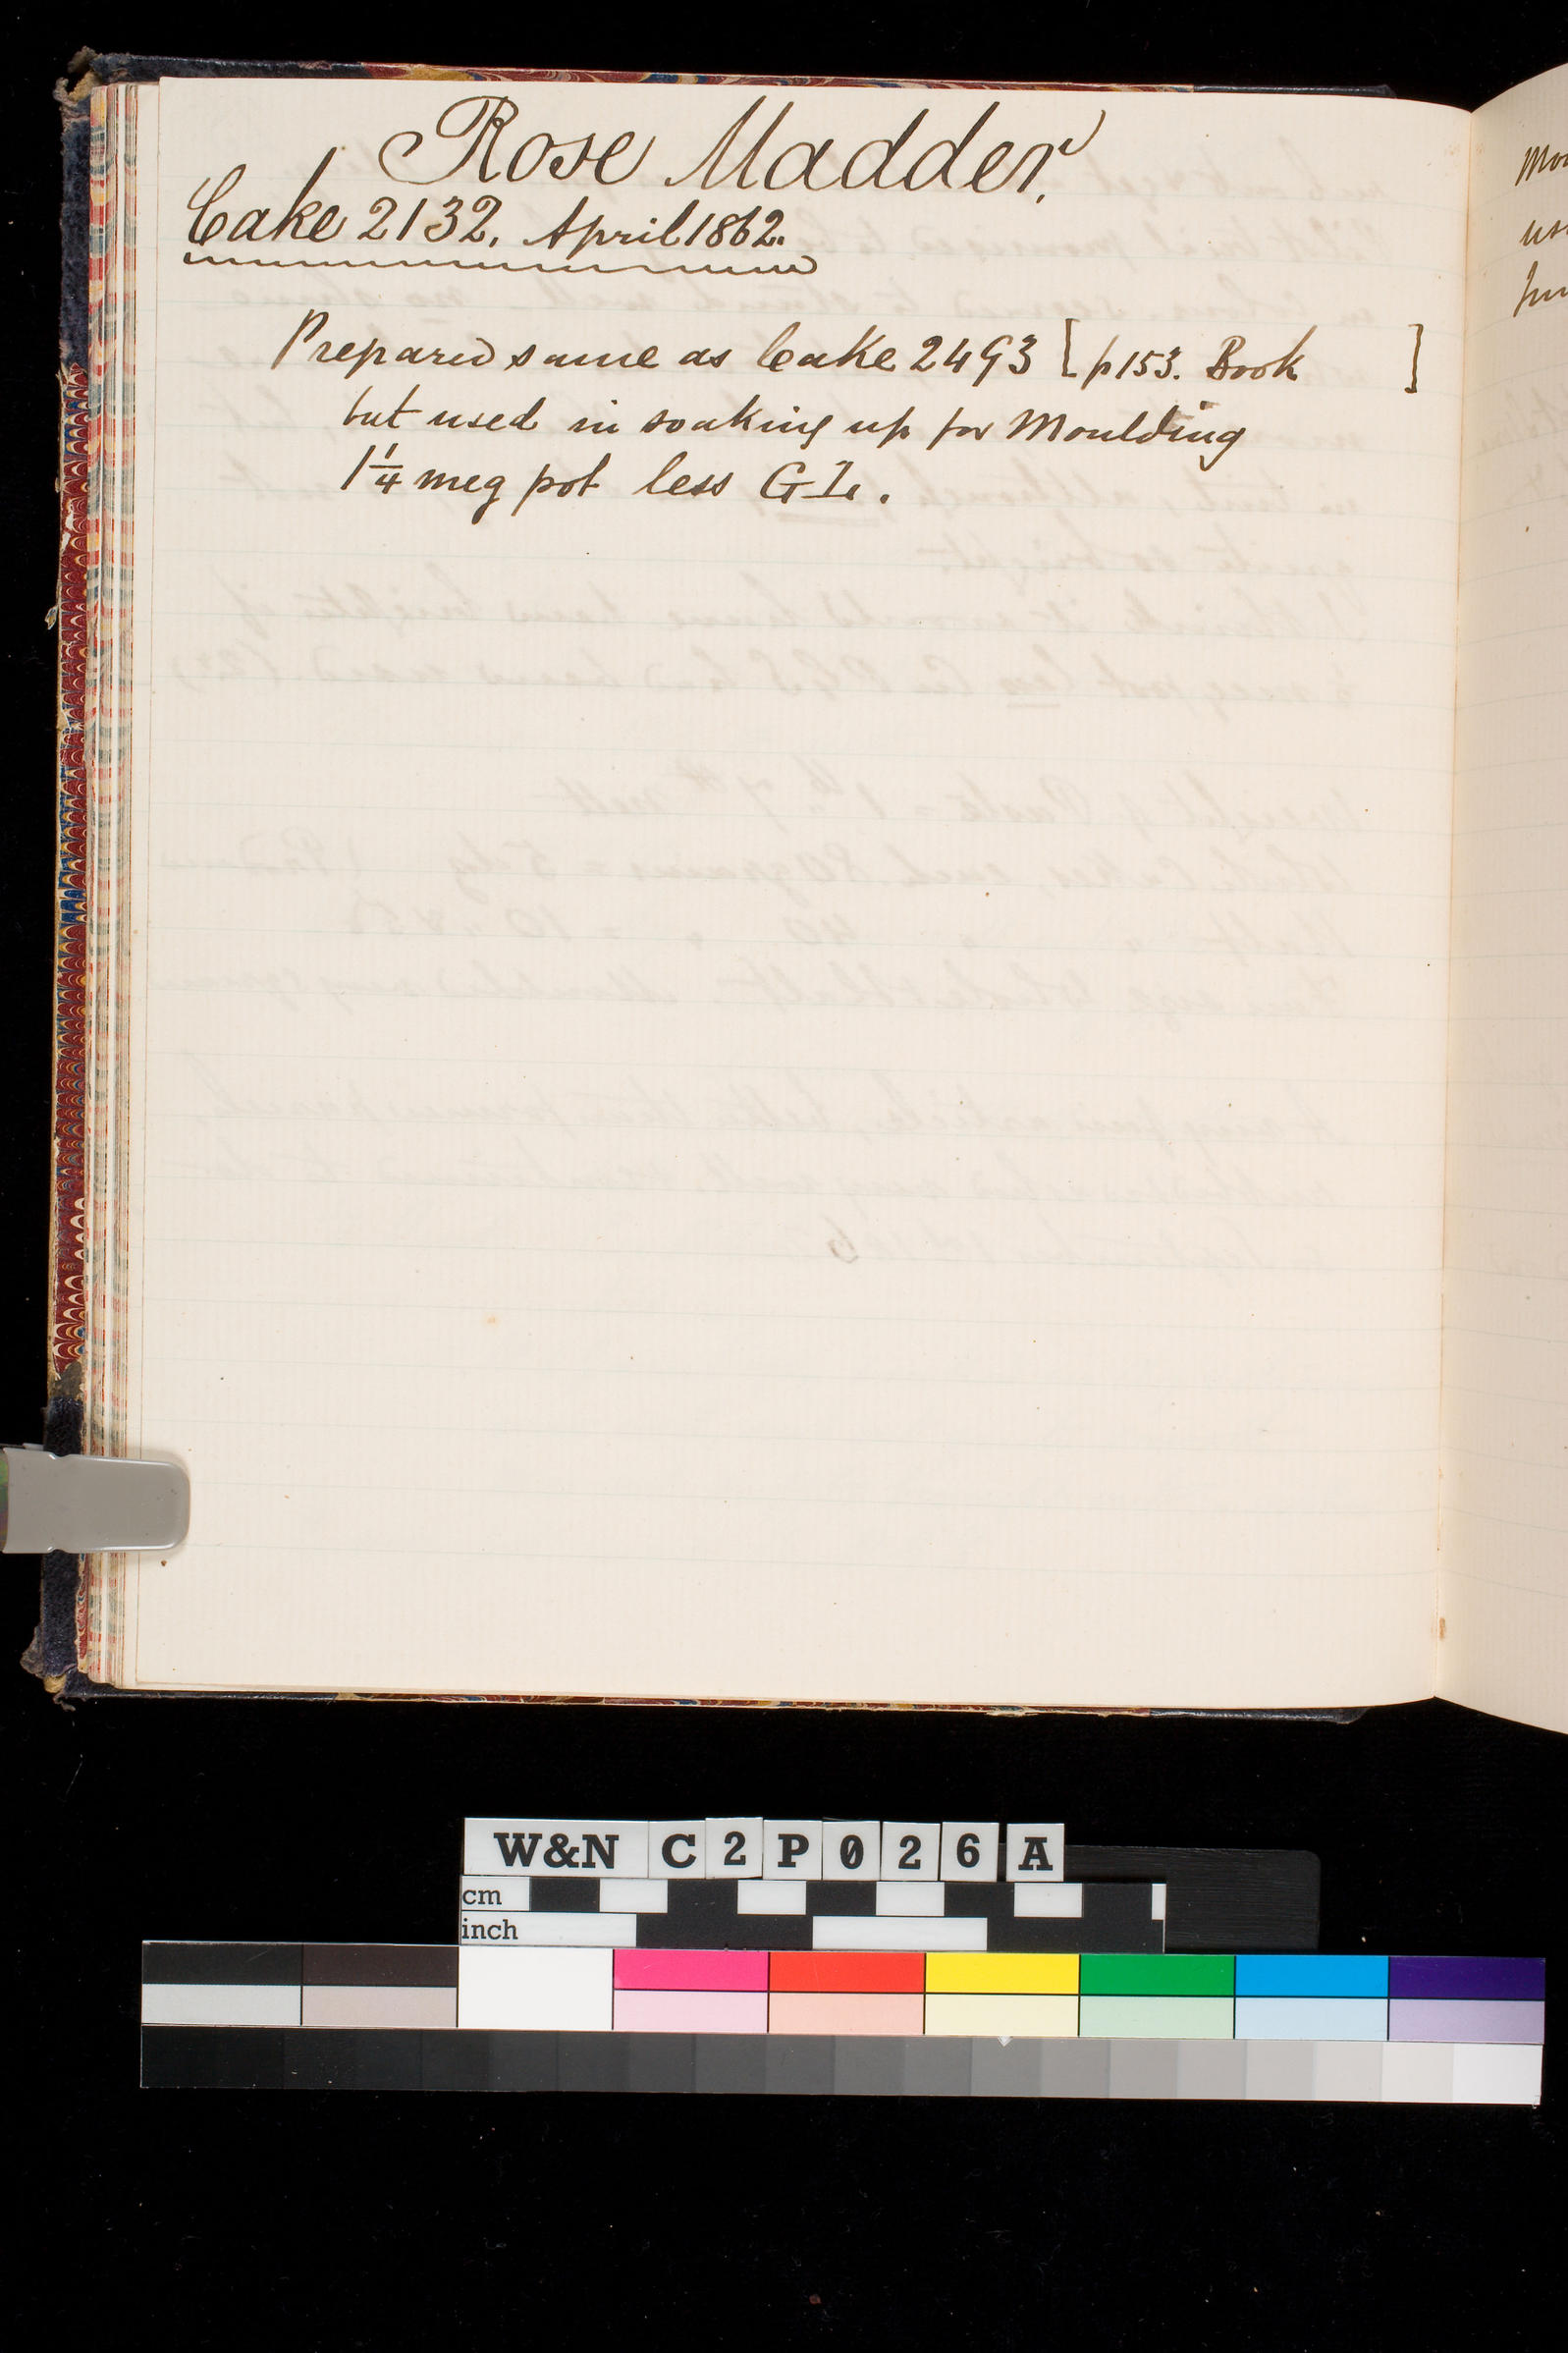 Rose Madder.
Cake 2132. April 1862.
Prepared same as Cake 2493 [p153. Book ]
but used in soaking up for Moulding
1¼ meg pot less
W&N C2P026A
cm
inch